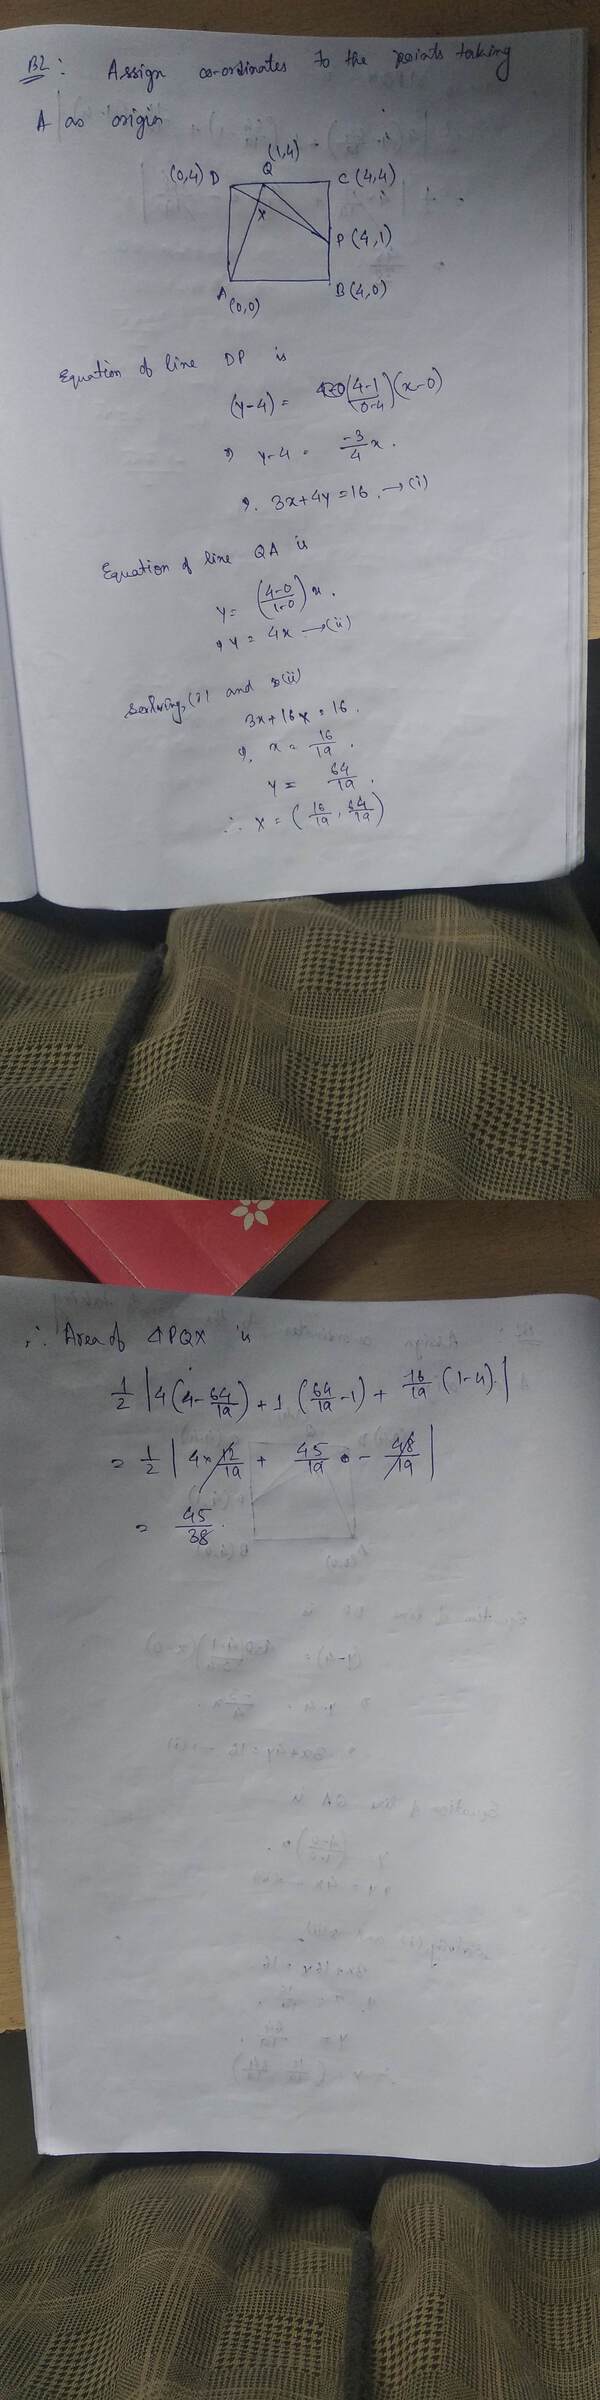 B2: Assign co-ordinates to the points taking
A as origin
(1,4)
(0,4) D Q C (4,4)
X
P (4,1)
A (0,0) B (4,0)
Equation of line DP is
(y-4) = (4-1/0-4)(x-0)
⇒ y-4 = -3/4 x.
⇒. 3x+4y=16. →(i)
Equation of line QA is
y = (4-0/1-0) x.
⇒ y = 4x →(ii)
Solving (i) and (ii)
3x+16x=16.
⇒. x = 16/19.
y = 64/19.
∴ X = (16/19, 64/19)
∴ Area of △PQX is
1/2 |4(4-64/19)+1(64/19-1)+16/19(1-4)|
= 1/2 |4×12/19 + 45/19 - 48/19|
= 45/38.